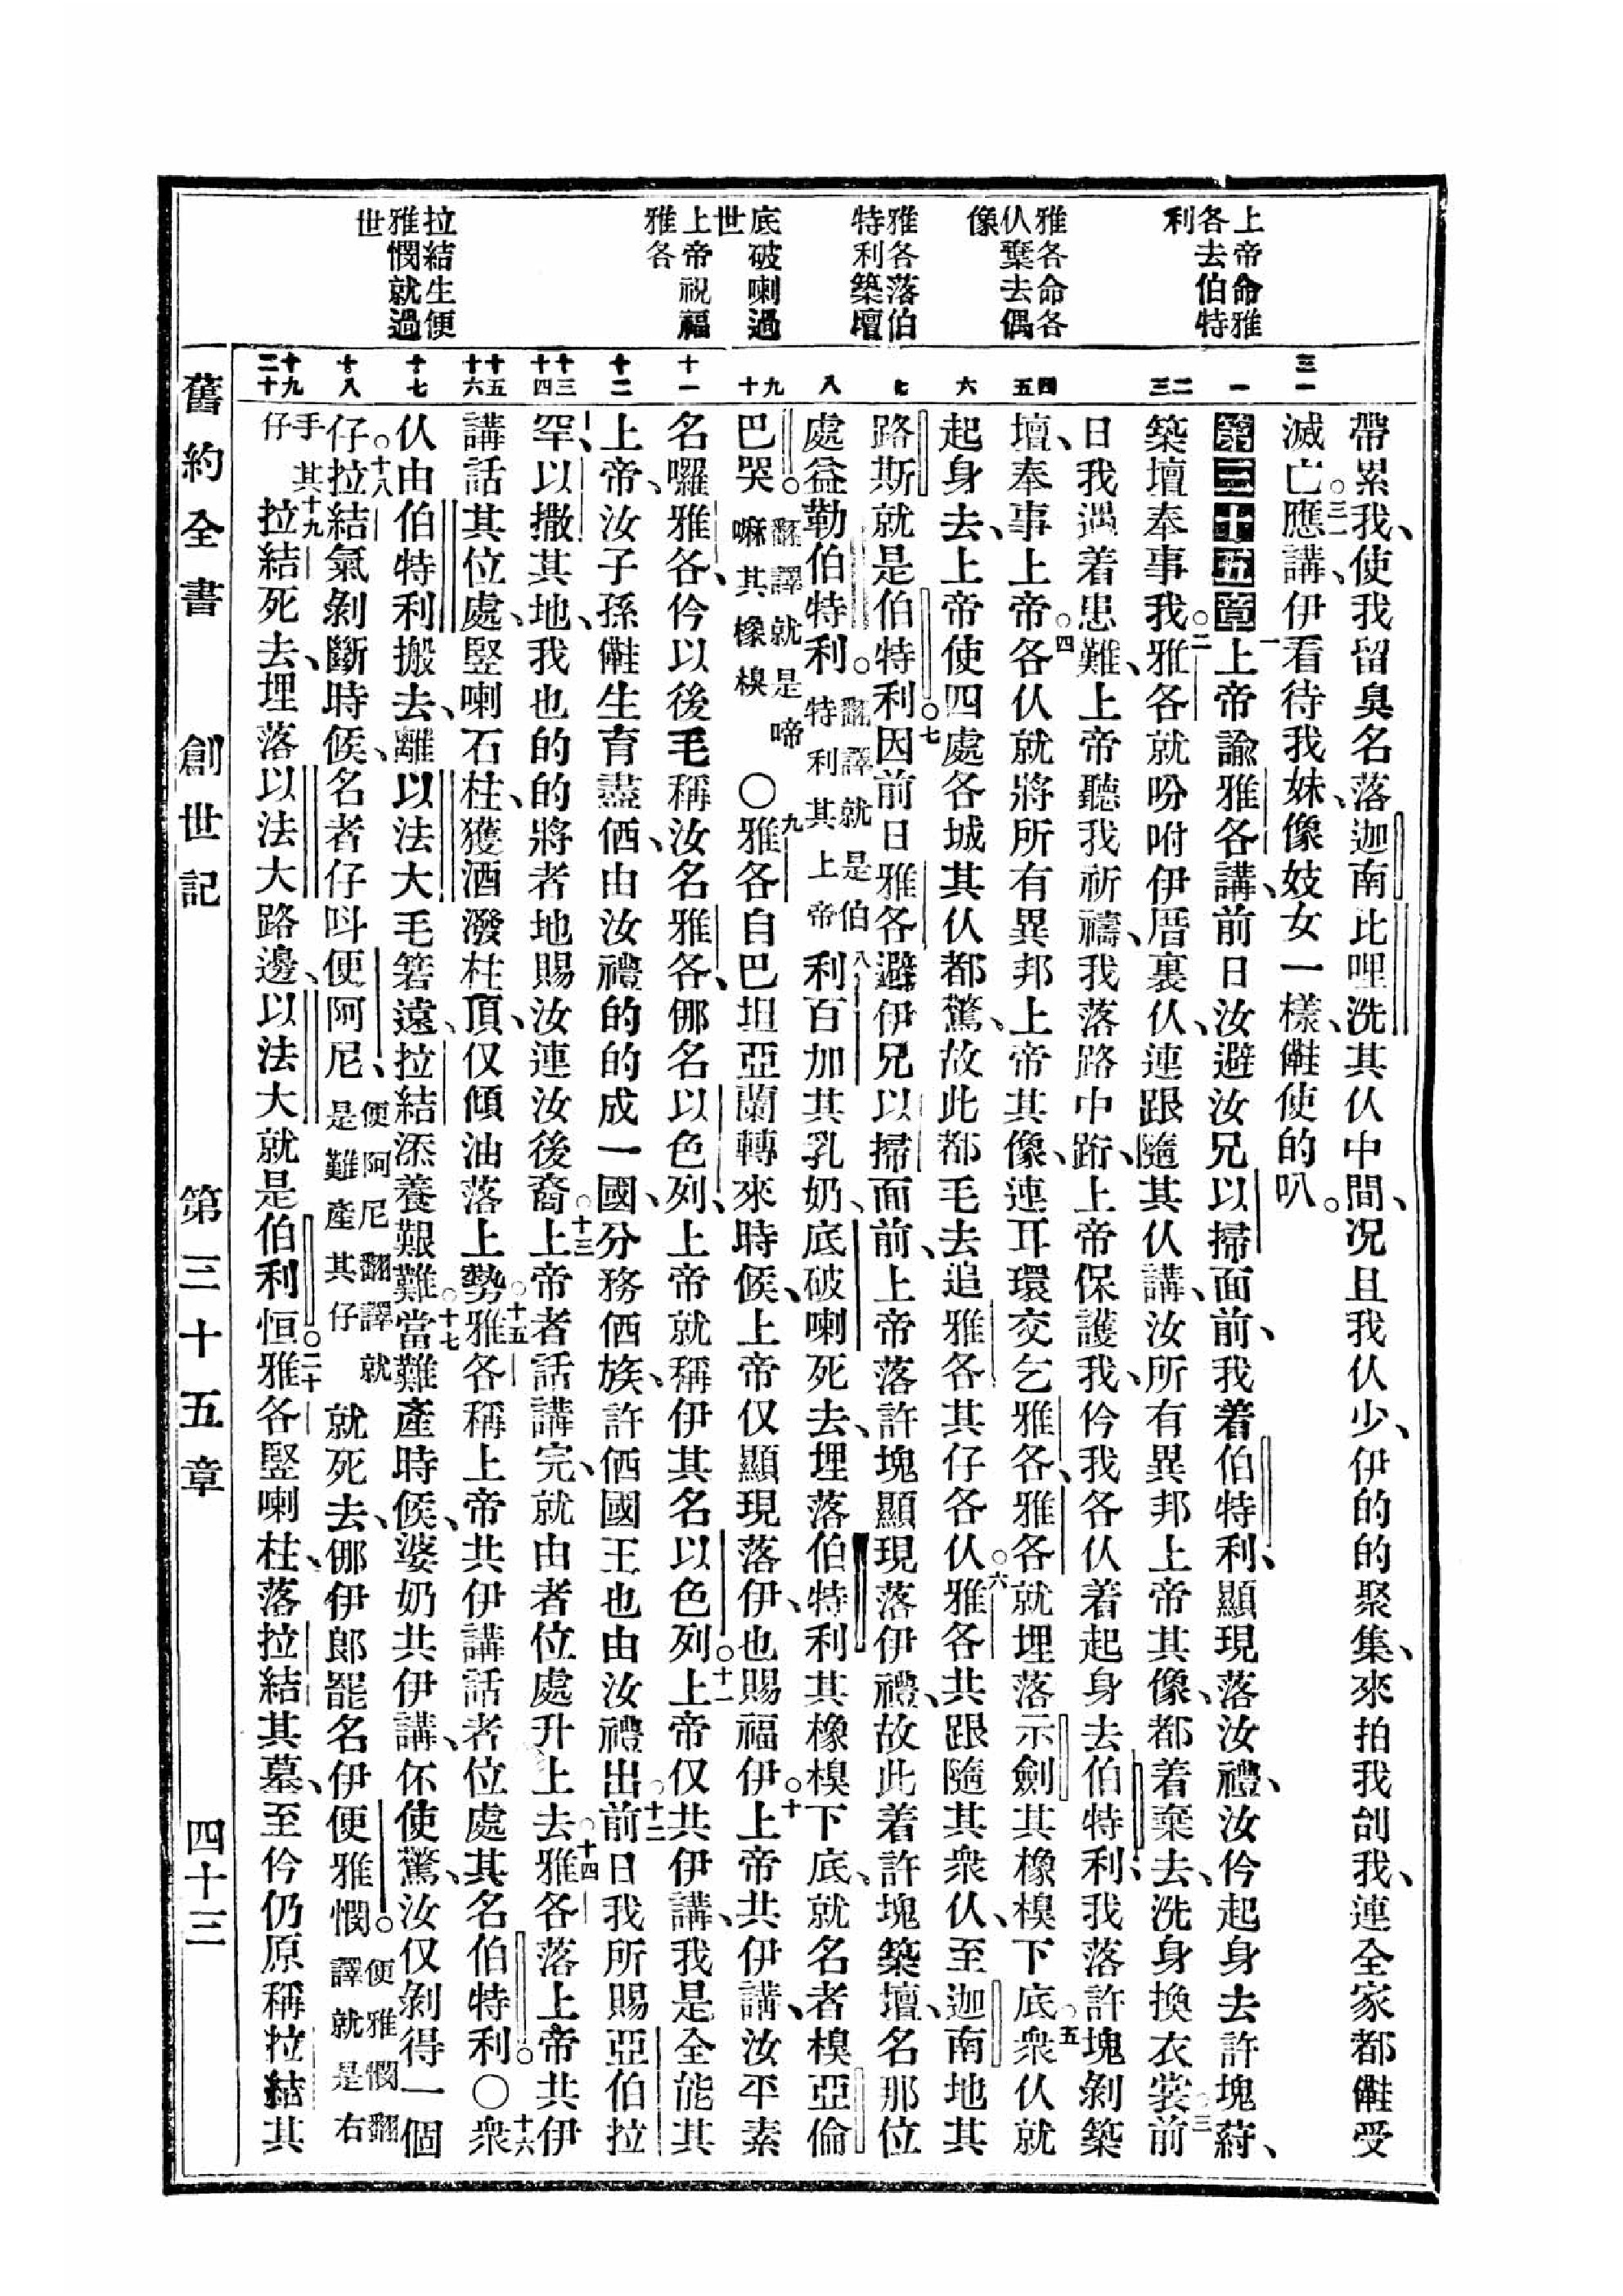 上帝命雅
各去伯特
利
雅各命各
仈棄去偶
像
雅各落伯
特利築壇
底破喇過
世
上帝祝福
雅各
拉結生便
雅憫就過
世
三一
一
二
三
四
五
六
七
八
九
十
十一
十二
十三
十四
十五
十六
十七
十八
十九
二十
帶累我、使我留臭名落迦南比哩洗其仈中間、况且我仈少、伊的的聚集、來拍我刣我、連全家都㑚受
滅亡。三一應講、伊看待我妹、像妓女一樣、㑚使的叭。
第三十五章一上帝諭雅各講、前日汝避汝兄以掃面前、我着伯特利、顯現落汝禮、汝仱起身去許塊葤、
築壇奉事我。二雅各就吩咐伊厝裏仈、連跟隨其仈講、汝所有異邦上帝其像、都着棄去、洗身換衣裳、三前
日我遇着患難、上帝聽我祈禱、我落路中䟰、上帝保護我、仱我各仈着起身去伯特利、我落許塊剝築
壇、奉事上帝。四各仈就將所有異邦上帝其像、連耳環交乞雅各、雅各就埋落示劍其橡模下底。五衆仈就
起身去、上帝使四處各城其仈都驚、故此都毛去追雅各其仔各仈。六雅各共跟隨其衆仈、至迦南地其
路斯就是伯特利。七因前日雅各避伊兄以掃面前、上帝落許塊顯現落伊禮、故此着許塊築壇、名那位
處益勒伯特利。翻譯就是伯特利其上帝八利百加其乳奶、底破喇死去、埋落伯特利其橡模下底、就名者模亞倫
巴哭。翻譯就是啼嘛其橡模○九雅各自巴坦亞蘭轉來時候、上帝仅顯現落伊、也賜福伊。十上帝共伊講、汝平素
名囉雅各、仱以後毛稱汝名雅各、㑚名以色列、上帝就稱伊其名以色列。十一上帝仅共伊講、我是全能其
上帝、汝子孫㑚生育盡価、由汝禮的的成一國、分務価族、許価國王也由汝禮出。十二前日我所賜亞伯拉
罕、以撒其地、我也的的將者地賜汝連汝後裔。十三上帝者話講完、就由者位處升上去。十四雅各落上帝共伊
講話其位處、竪喇石柱、獲酒潑柱頂、仅傾油落上勢。十五雅各稱上帝共伊講話者位處其名伯特利。○十六衆
仈由伯特利搬去、離以法大毛箬遠、拉結添養艱難。十七當難產時候、婆奶共伊講、伓使驚、汝仅剝得一個
仔。十八拉結氣剝斷時候、名者仔呌便阿尼、便阿尼翻譯就是難產其仔就死去、㑚伊郎罷名伊便雅憫。便雅憫翻譯就是右
手其仔十九拉結死去、埋落以法大路邊、以法大就是伯利恒。二十雅各竪喇柱、落拉結其墓、至仱仍原稱拉結其
舊約全書 創世記 第三十五章 四十三